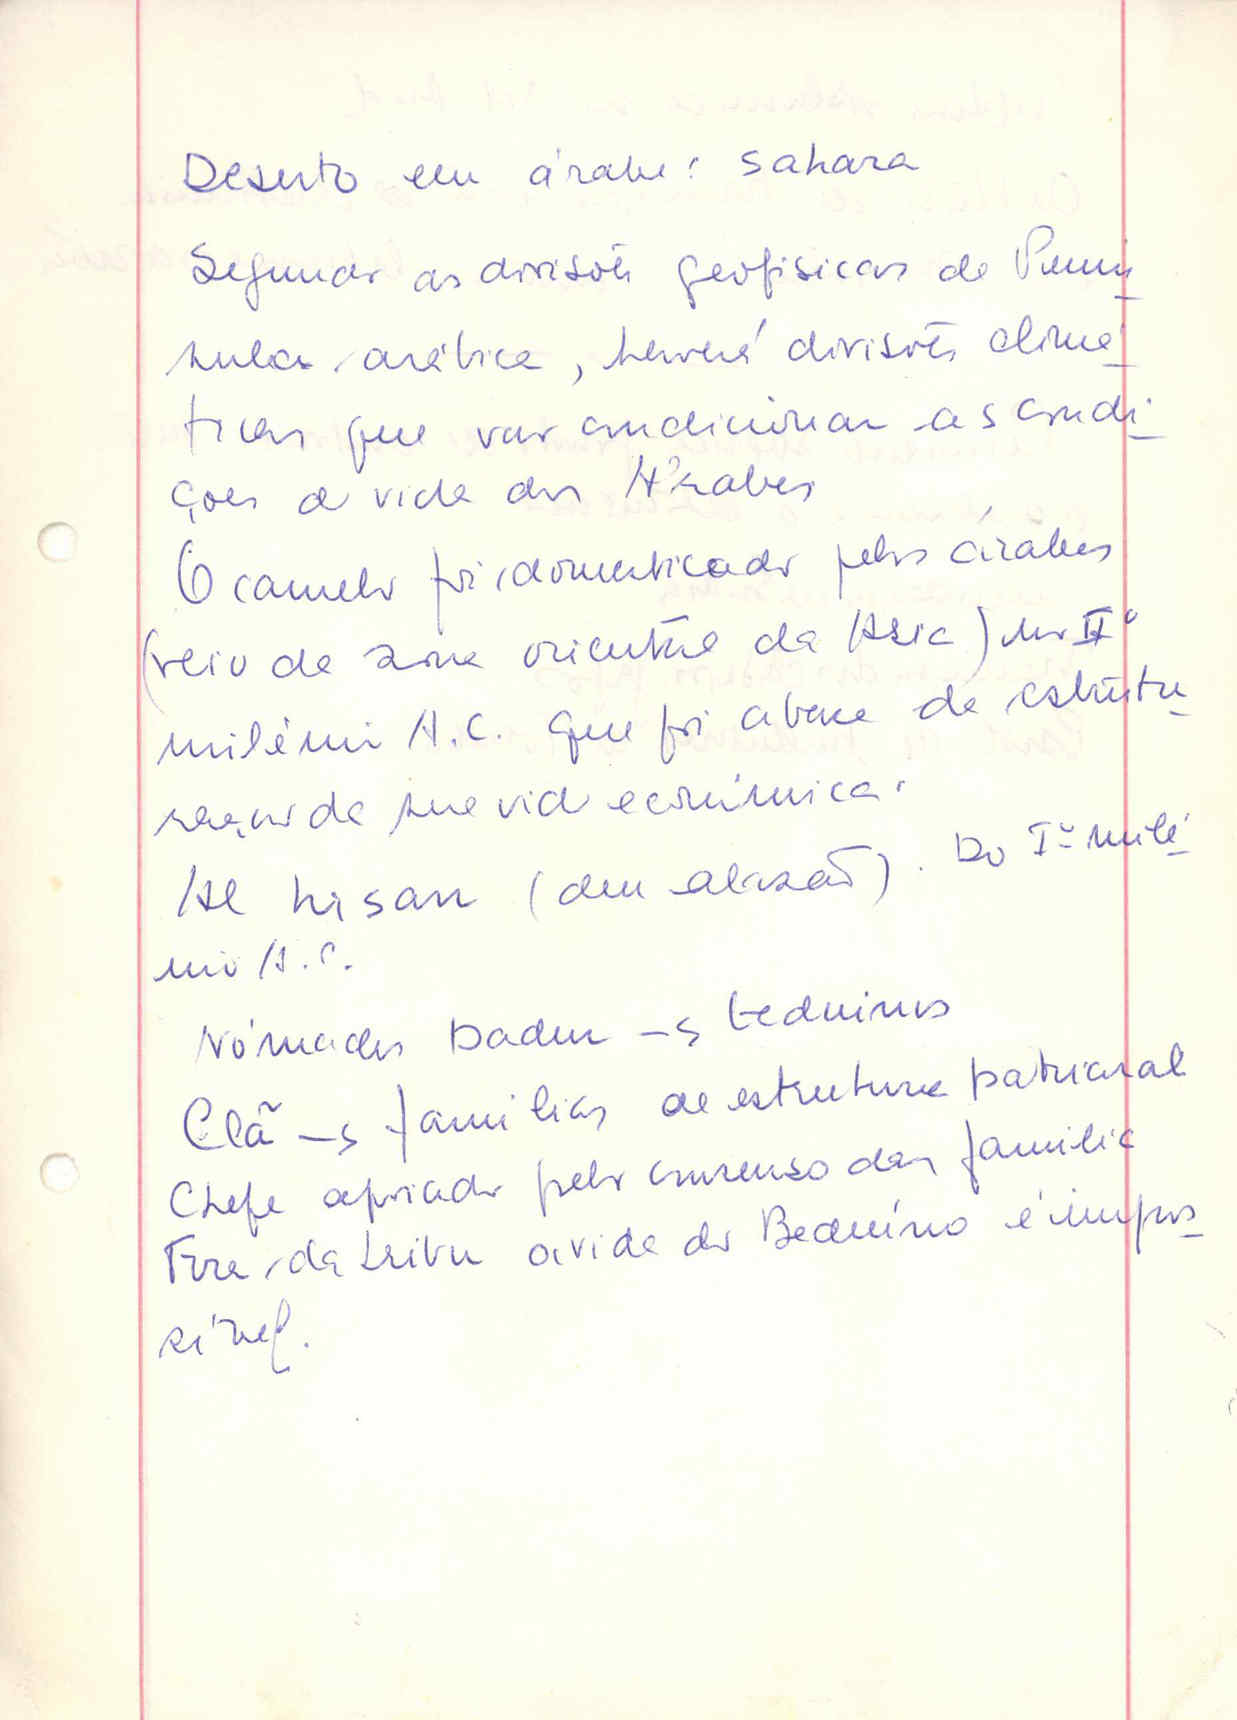 Deserto em árabe: sahara
Segundo as divisões geofisicas da Penin
sula arábica, haverá divisões climá
ticas que vão condicionar as condi
ções de vida dos Árabes
O camelo foi domesticado pelos árabes
(veio da zona oriental da Asia) no IIº
milénio A.C. que foi a base da estrutu
ração da sua vida económica.
Al hisan (deu alazão). Do Iº milé
nio A.C.
Nómadas Badu → beduinos
Clã → familias de estrutura patriarcal
Chefe apoiado pelo consenso das familia
Fora da tribu a vida do Beduíno é impos
sível.